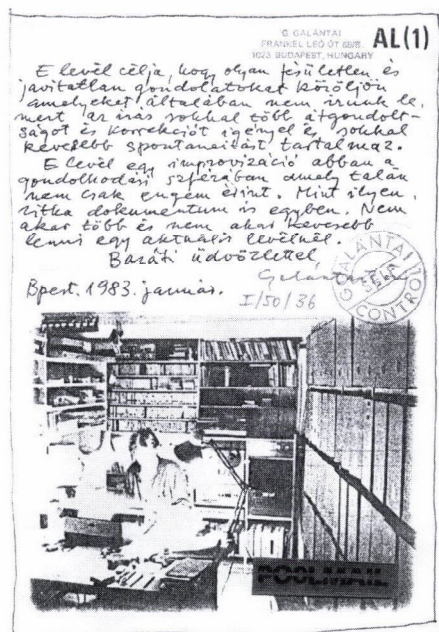 G. GALÁNTAI
FRANKEL LEÓ ÚT 68/B.
1023 BUDAPEST, HUNGARY
AL(1)
E levél célja, hogy olyan fésületlen és
javitatlan gondolatokat közöljön
amelyeket általában nem irunk le,
mert az irás sokkal több átgondolt-
ságot és korrekciót igényel és sokkal
kevesebb spontaneitást tartalmaz.
E levél egy improvizáció abban a
gondolkodási szférában amely talán
nem csak engem érint. Mint ilyen,
ritka dokumentum is egyben. Nem
akar több és nem akar kevesebb
lenni egy aktuális levélnél.
Baráti üdvözlettel
Bpest. 1983. január.
I/50/36
GALÁNTAI
CONTROL
POOLMAIL